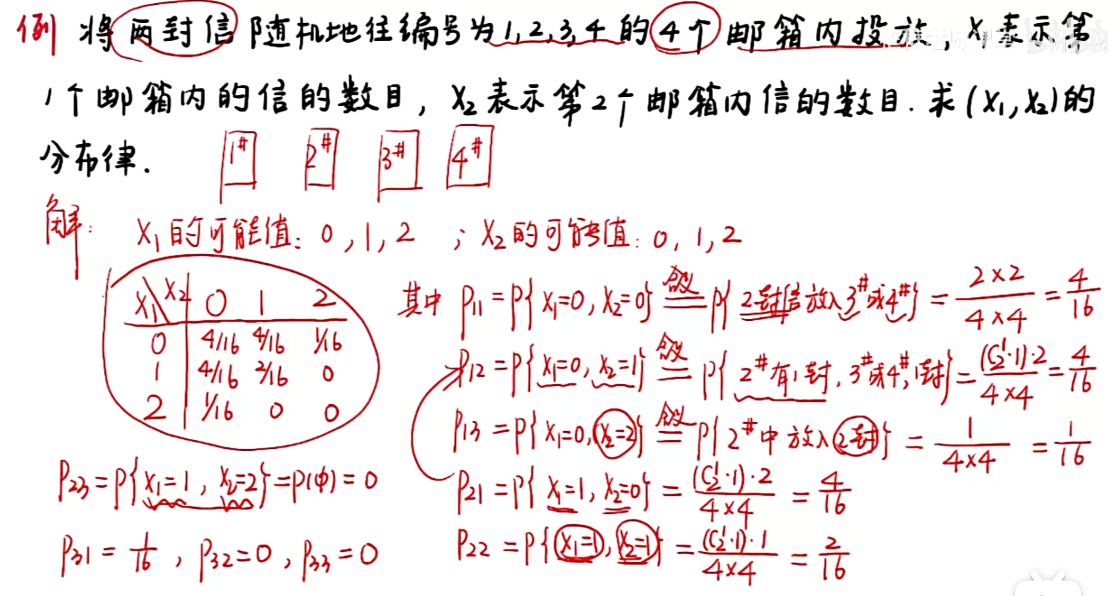 例 将两封信随机地往编号为1,2,3,4的4个邮箱内投放, X₁表示第
1个邮箱内的信的数目, X₂表示第2个邮箱内信的数目. 求(X₁,X₂)的
分布律.
1# 2# 3# 4#
解: X₁的可能值: 0, 1, 2 ; X₂的可能值: 0, 1, 2
X₁\X₂ 0 1 2
0 4/16 4/16 1/16
1 4/16 2/16 0
2 1/16 0 0
其中 P₁₁=P{X₁=0, X₂=0} 含义= P{2封信放入3#或4#} = 2×2/4×4 = 4/16
P₁₂=P{X₁=0, X₂=1} 含义= P{2#有1封, 3#或4#, 1封} = (C₂¹·1)·2/4×4 = 4/16
P₁₃=P{X₁=0, X₂=2} 含义= P{2#中放入2封} = 1/4×4 = 1/16
P₂₁=P{X₁=1, X₂=0} = (C₂¹·1)·2/4×4 = 4/16
P₂₂=P{X₁=1, X₂=1} = (C₂¹·1)·1/4×4 = 2/16
P₂₃=P{X₁=1, X₂=2}=P(φ)=0
P₃₁=1/16, P₃₂=0, P₃₃=0